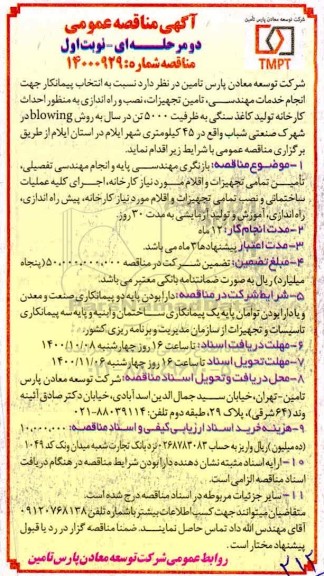 شرکت توسعه معادن پارس تامین
TMPT
آگهی مناقصه عمومی
دو مرحله ای - نوبت اول
مناقصه شماره: ۱۴۰۰۰۹۲۹
شرکت توسعه معادن پارس تامین در نظر دارد نسبت به انتخاب پیمانکار جهت
انجام خدمات مهندسی، تامین تجهیزات، نصب و راه اندازی به منظور احداث
کارخانه تولید کاغذ سنگی به ظرفیت ۵۰۰۰ تن در سال به روش blowing در
شهرک صنعتی شباب واقع در ۴۵ کیلومتری شهر ایلام در استان ایلام از طریق
برگزاری مناقصه عمومی با شرایط زیر اقدام نماید.
۱-موضوع مناقصه: بازنگری مهندسی پایه و انجام مهندسی تفصیلی،
تأمین تمامی تجهیزات و اقلام مورد نیاز کارخانه، اجرای کلیه عملیات
ساختمانی و نصب تمامی تجهیزات و اقلام مورد نیاز کارخانه، پیش راه اندازی،
راه اندازی، آموزش و تولید آزمایشی به مدت ۳۰ روز.
۲-مدت انجام کار: ۱۲ ماه
۳-مدت اعتبار پیشنهادها ۳ ماه می باشد.
۴-مبلغ تضمین: تضمین شرکت در مناقصه ۵۰,۰۰۰,۰۰۰,۰۰۰ (پنجاه
میلیارد) ریال به صورت ضمانتنامه بانکی معتبر می باشد.
۵-شرایط شرکت در مناقصه: دارا بودن پایه دو پیمانکاری صنعت و معدن
و یا دارا بودن توامان پایه یک پیمانکاری ساختمان و ابنیه و پایه سه پیمانکاری
تاسیسات و تجهیزات از سازمان مدیریت و برنامه ریزی کشور.
۶-مهلت دریافت اسناد: تا ساعت ۱۶ روز چهارشنبه ۱۴۰۰/۱۰/۰۸
۷-مهلت تحویل اسناد: تا ساعت ۱۶ روز چهارشنبه ۱۴۰۰/۱۱/۰۶
۸-محل دریافت و تحویل اسناد مناقصه: شرکت توسعه معادن پارس
تامین-تهران، خیابان سید جمال الدین اسدآبادی، خیابان دکتر صادق آئینه
وند (۶۴ شرقی)، پلاک ۲۹، طبقه دوم تلفن: ۸۸۰۳۹۱۱۴-۰۲۱
۹-هزینه خرید اسناد ارزیابی کیفی و اسناد مناقصه: ۱۰,۰۰۰,۰۰۰
(ده میلیون) ریال واریز به حساب ۰۲۶۸۷۸۳۰۸۳ نزد بانک تجارت شعبه میدان ونک کد ۱۰۴۹
۱۰-ارایه اسناد مثبته نشان دهنده دارا بودن شرایط مناقصه در هنگام دریافت
اسناد مناقصه الزامی است.
۱۱-سایر جزئیات مربوطه در اسناد مناقصه درج شده است.
متقاضیان میتوانند جهت کسب اطلاعات بیشتر با شماره ۰۹۱۲۰۷۶۸۱۳۸
آقای مهندس الله داد تماس حاصل نمایند. ضمنا مناقصه گزار در رد یا قبول
پیشنهاد مختار است.
روابط عمومی شرکت توسعه معادن پارس تامین